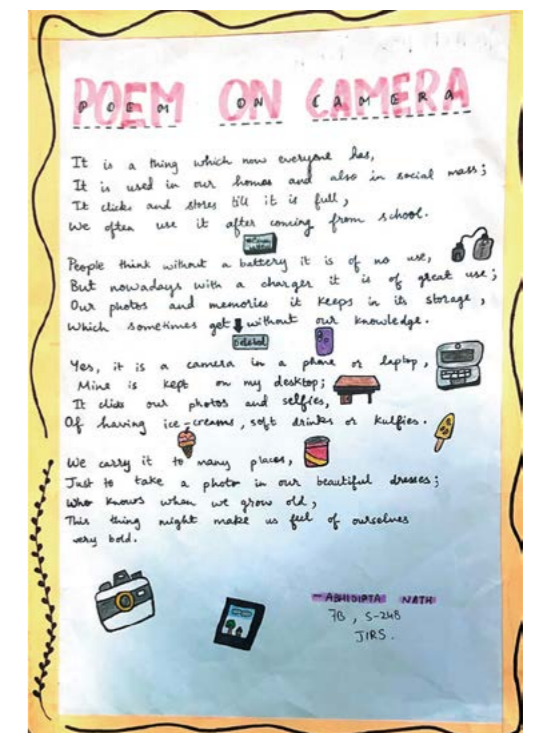 POEM ON CAMERA
It is a thing which now everyone has,
It is used in our homes and also in social mass;
It clicks and stores till it is full,
We often use it after coming from school.
People think without a battery it is of no use,
But nowadays with a charger it is of great use;
Our photos and memories it keeps in its storage,
Which sometimes get without our knowledge.
Deleted
Yes, it is a camera in a phone or laptop,
Mine is kept on my desktop;
It clicks our photos and selfies,
Of having ice-creams, soft drinks or kulfies.
We carry it to many places,
Just to take a photo in our beautiful dresses;
Who knows when we grow old,
This thing might make us feel of ourselves
very bold.
- ABHIDIPTA NATH
7B, S-248
JIRS.